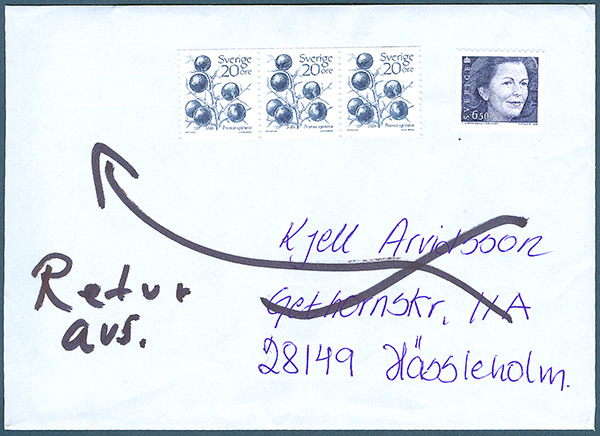 Sverige
20 öre
Slån Prunus spinosa
Sverige
20 öre
Slån Prunus spinosa
Sverige
20 öre
Slån Prunus spinosa
SVERIGE
650
Kjell Arvidsson
Gethornskr. 11A
28149 Hässleholm.
Retur
avs.